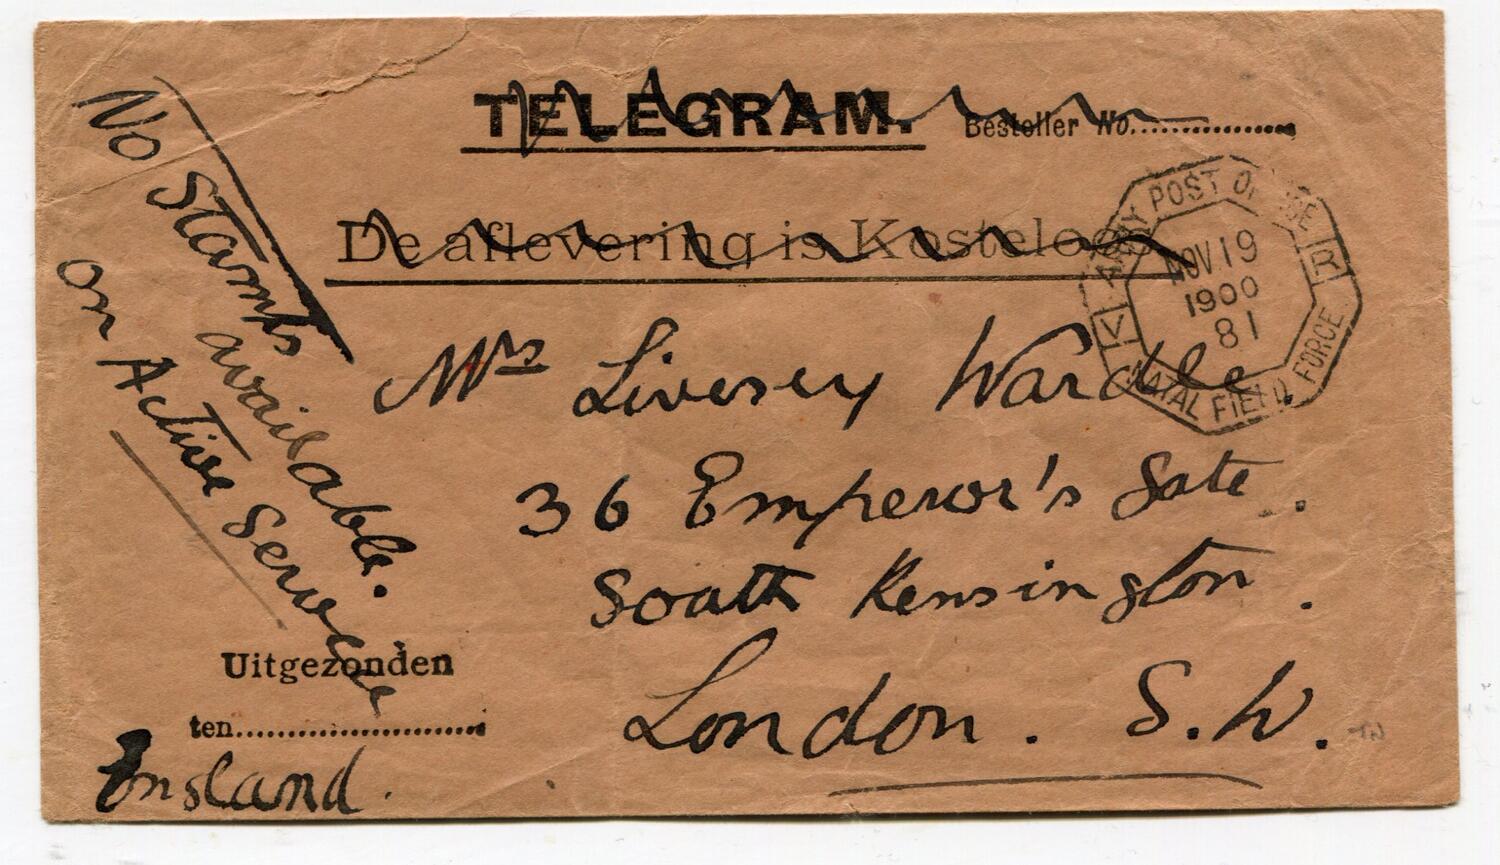 TELEGRAM. Besteller No.
De aflevering is Kosteloos
No Stamps
available.
on Active Service
ARMY POST OFFICE
R
NOV. 19
1900
81
V
NATAL FIELD FORCE
Mrs Livesey Wardle.
36 Emperor's Gate.
South Kensington.
London. S.W.
Uitgezonden
ten
England.